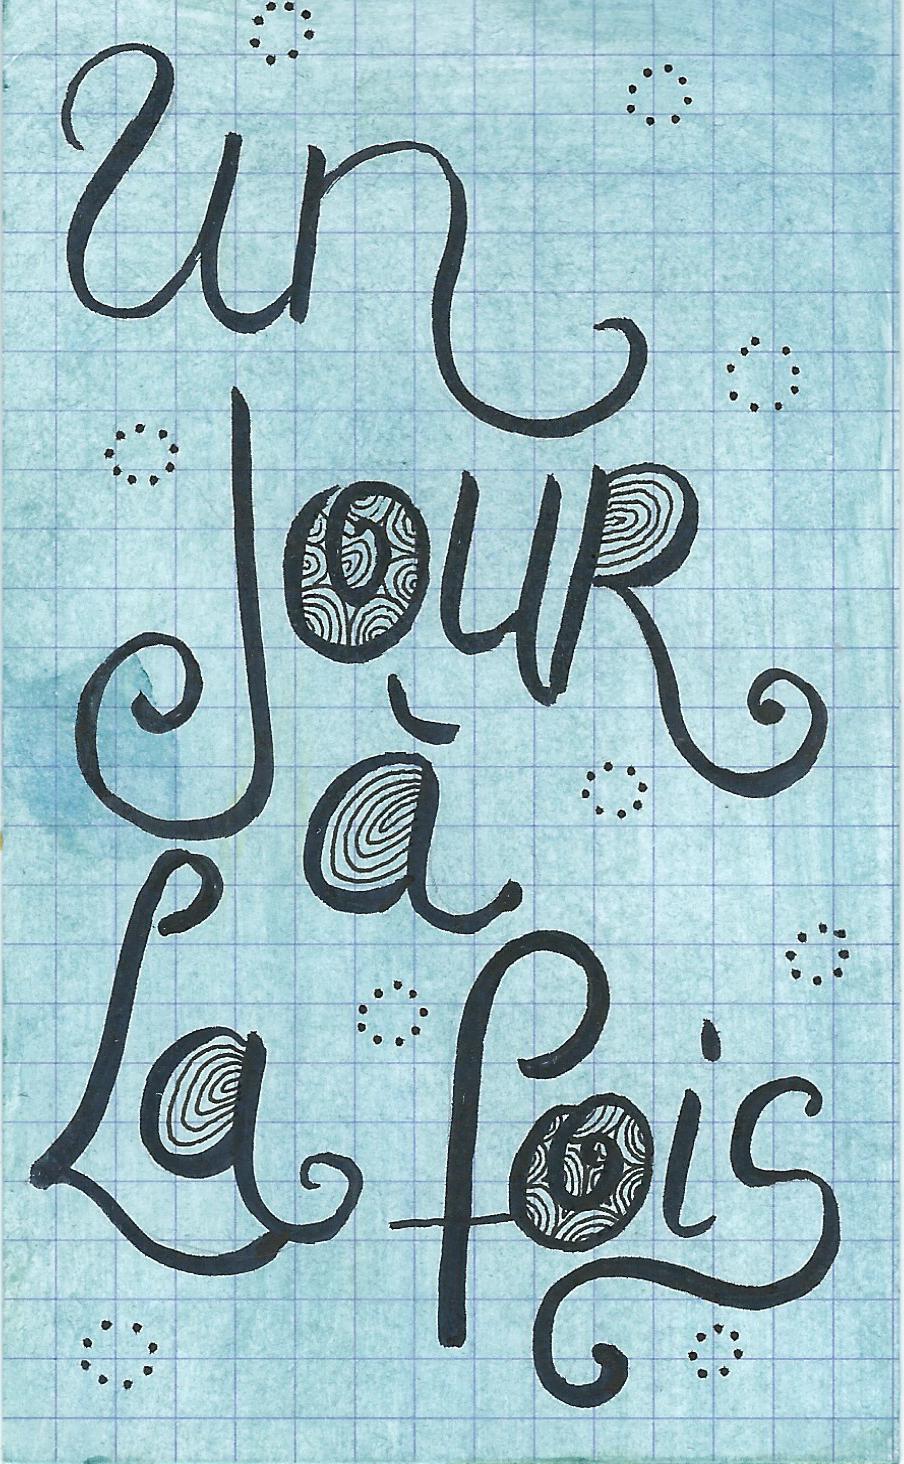 Un
Jour
à
La fois